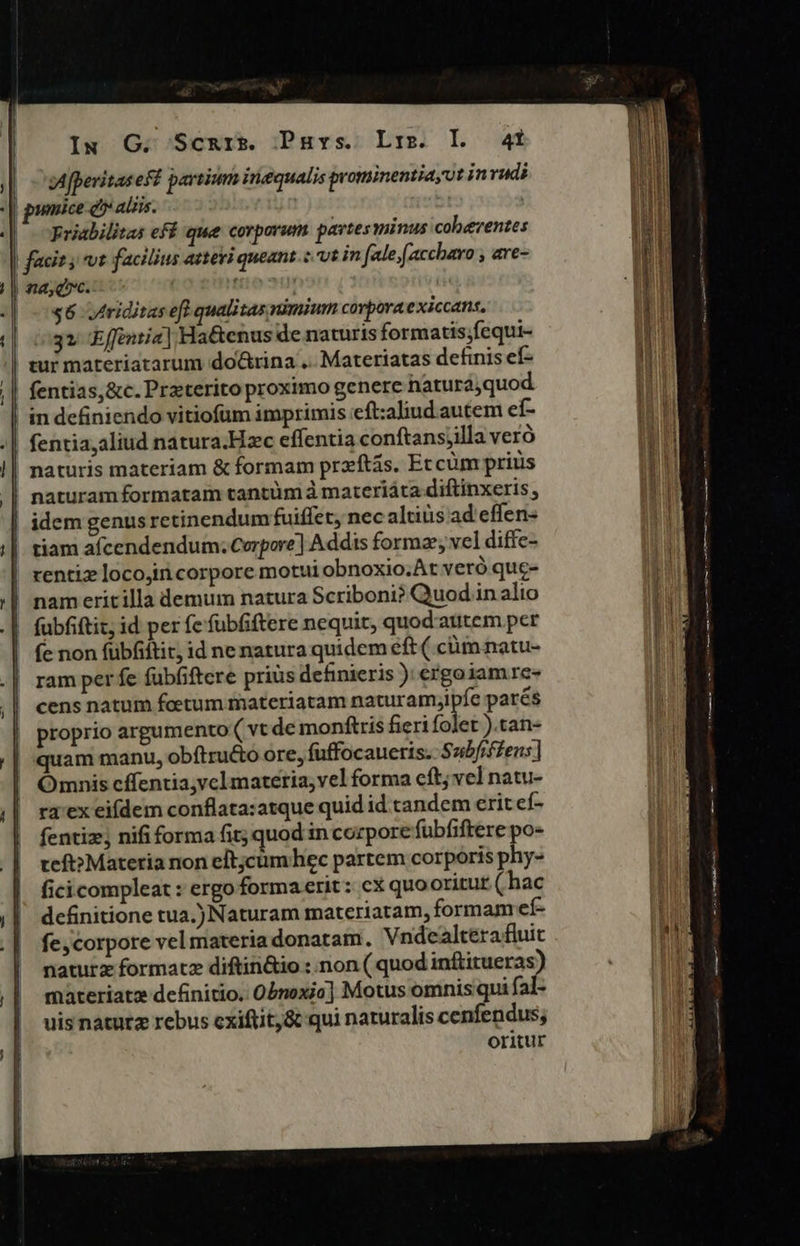 In G. Scrib. Phys. Lib. I. 41
Aſperitas eſt partium inæqualis prominentia, vt in rudi
pumice & aliis.
Friabilitas eſt quæ corporum partes minus cohærentes
facit, vt facilius atteri queant: vt in ſale, ſaccharo, are-
na, &c.
56 Ariditas eſt qualitas nimium corpora exiccans.
32 Eſſentia] Hactenus de naturis formatis, ſequi-
tur materiatarum doctrina. Materiatas definis eſ-
ſentias, &c. Præterito proximo genere natura, quod
in definiendo vitioſum imprimis eſt: aliud autem eſ-
ſentia, aliud natura. Hæc eſſentia conſtans, illa verò
naturis materiam & formam præſtãs. Et cùm priùs
naturam formatam tantùm à materiáta diſtinxeris,
idem genus retinendum fuiſſet, nec altiùs ad eſſen-
tiam aſcendendum. Corpore] Addis formæ, vel diffe-
rentiæ loco, in corpore motui obnoxio. At verò quę-
nam erit illa demum natura Scriboni? Quod in alio
ſubſiſtit, id per ſe ſubſiſtere nequit, quod autem per
ſe non ſubſiſtit, id ne natura quidem eſt (cùm natu-
ram per ſe ſubſiſtere priùs definieris): ergo iam re-
cens natum fœtum materiatam naturam, ipſe parẽs
proprio argumento (vt de monſtris fieri ſolet) tan-
quam manu, obſtructo ore, ſuffocaueris. Subſiſtens]
Omnis eſſentia, vel materia, vel forma eſt, vel natu-
ra ex eiſdem conflata: atque quid id tandem erit eſ-
ſentiæ, niſi forma ſit, quod in corpore ſubſiſtere po-
teſt? Materia non eſt, cùm hęc partem corporis phy-
ſici compleat: ergo forma erit: ex quo oritur (hac
definitione tua.) Naturam materiatam, formam eſ-
ſe, corpore vel materia donatam. Vnde altera fluit
naturæ formatæ diſtinctio: non (quod inſtitueras)
materiatæ definitio. Obnoxio] Motus omnis qui ſal-
uis naturæ rebus exiſtit, & qui naturalis cenſendus,
oritur